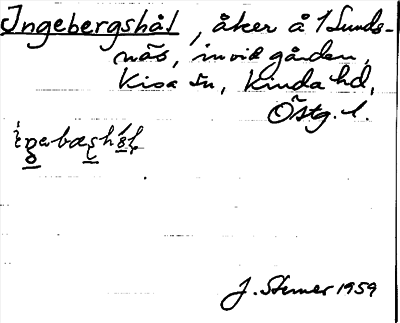 Ingebergshål, åker å 1 Lunds-
näs, invid gården,
Kisa sn, Kinda hd,
Östg. l.
J. Sterner 1959